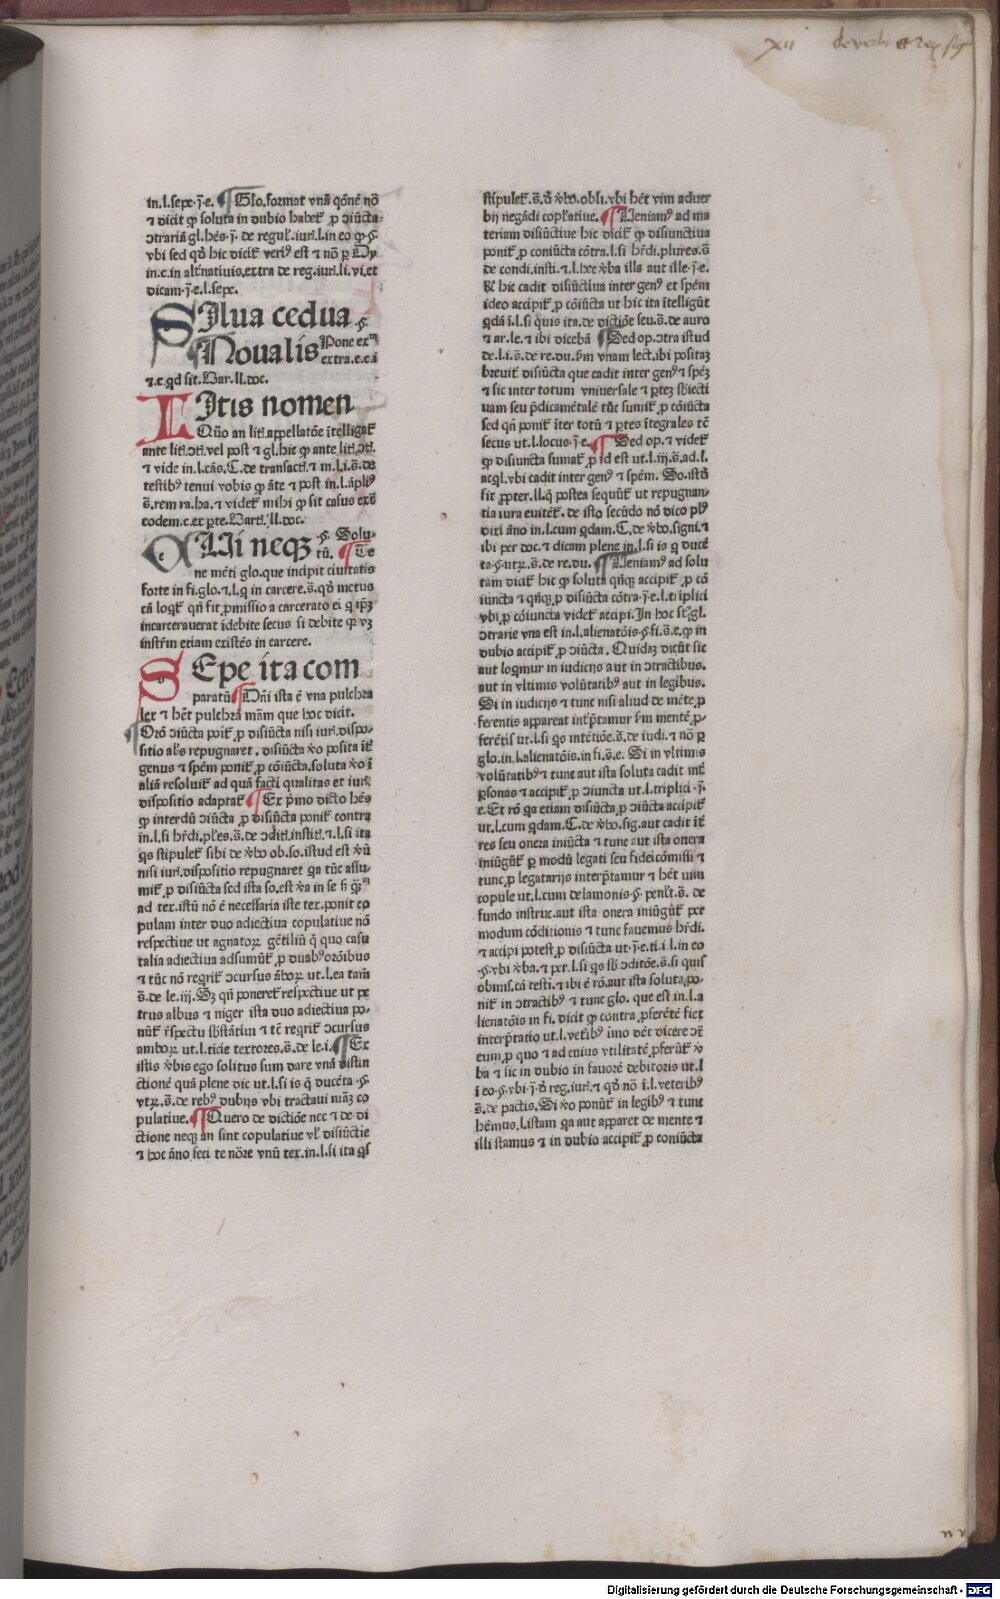 xii de verbo et reꝝ sig
in.l.sepe.j̄.e. ¶ Glo.format vnā q̄ōnē nō
⁊ dicit ꝙ soluta in dubio habet᷑ ꝓ ↄiūcta
ↄtrariā gl.hēs.j̄.de regul᷑.iur̄.l.in eo ꝙ.§.
vbi sed qꝫ hic dicit᷑ veriꝰ est ⁊ nō ꝑ Dy
in.c.in alt̄natiuis.extra de reg.iur̄.li.vi.et
dicam.j̄.e.l.sepe.
SIlua cedua .§.
Noualis Pone exᵐ
extra.e.c.i
⁊.c.qd sit.Bar.ll.doc.
LItis nomen
Qūo an liti᷑.appellatōe ītelligat᷑
ante liti᷑.ↄti᷑.vel post ⁊ gl.hic ꝙ ante liti᷑.ↄti᷑.
⁊ vide in.l.cās.C.de transacti᷑.⁊ in.l.i.s̄.de
testibꝰ tenui vobis ꝙ āte ⁊ post in.l.āpliꝰ
s̄.rem ra.ha.⁊ videt᷑ mihi ꝙ sit casus ext᷑
eodem.c.ex ꝑte.Barti᷑.ll.doc.
QUi neqꝫ .§. Solu-
tū. ¶ Te
ne mēti glo.que incipit ciuitatis
forte in fi.glo.⁊.l.q in carcere.s̄.qꝫ metus
cā loqt᷑ qn̄ fit ꝓmissio a carcerato ei q ip̄ꝫ
incarcerauerat īdebite secus si debite qꝛ vꝫ
instr̄m etiam existēs in carcere.
SEpe ita com
paratū ¶ Dn̄i ista ē vna pulchra
lex ⁊ hēt pulchrā mām que hoc dicit.
¶ Orō ↄiūcta poīt᷑ ꝓ disiūcta nisi iur̄.dispo-
sitio al̄s repugnaret.disiūcta v̄o posita īt᷑
genus ⁊ spēm ponit᷑ ꝓ cōiūcta.soluta v̄o ī
aliā resoluit᷑ ad quā facti qualitas et iur̄.
dispositio adaptat᷑ ¶ Ex p̄mo dicto hēs
ꝙ interdū ↄiūcta ꝓ disiūcta ponit᷑ contra
in.l.si hr̄di.pl̄es.s̄.de ↄditi᷑.institi᷑.⁊.l.si ita
qs stipulet᷑ sibi de v̄bo ob.so.istud est v̄ū
nisi iur̄.dispositio repugnaret qa tūc assu-
mit᷑ ꝓ disiūcta sed ista so.est v̄a in se
ad tex.istū nō ē necessaria iste tex.ponit co
pulam inter duo adiectiua copulatiue nō
respectiue ut agnatoꝝ gētiliū q̄ quo casu
talia adiectiua adsumūt᷑ ꝓ duabꝰ orōibus
⁊ tūc nō reqrit᷑ ↄcursus āboꝝ ut.l.ea tam̄
s̄.de le.iij.Sꝫ qn̄ poneret᷑ respectiue ut pe
trus albus ⁊ niger ista duo adiectiua po-
nūt᷑ r̄spectu sb̄stātiui ⁊ tē reqrit᷑ ↄcursus
amboꝝ ut.l.ticie textores.s̄.de le.i. ¶ Ex
istis v̄bis ego solitus sum dare vnā distin
ctionē quā plene dic ut.l.si is q̄ ducēta.§.
vtꝝ.s̄.de rebꝰ dubijs vbi tractaui māꝫ co
pulatiue. ¶ Quero de dictiōe nec ⁊ de di
ctione neqꝫ an sint copulatiue vl᷑ disiūctie
⁊ hoc āno feci te nōre vnū tex.in.l.si ita qs
stipulet᷑.s̄.d̄ v̄bo.obli.vbi hēt vim aduer
bij negādi copl̄atiue. ¶ Ueniamꝰ ad ma
teriam disiūctiue hic dicit᷑ ꝙ disiunctiua
ponit᷑ ꝓ coniūcta cōtra.l.si hr̄di.plures.s̄
de condi.insti.⁊.l.hec v̄ba illa aut ille.j̄.e.
R̄ hic cadit disiūctiua inter genꝰ et spēm
ideo accipit᷑ ꝓ cōiūcta ut hic ita ītelligūt
qdā ī.l.si quis ita.de dictiōe seu.s̄.de auro
⁊ ar.le.⁊ ibi dicebā ¶ Sed op.ↄtra istud
de.l.i.s̄.de re.du.s̄m vnam lect.ibi positaꝫ
breuit᷑ disiūcta que cadit inter genꝰ ⁊ spēꝫ
⁊ sic inter totum vniuersale ⁊ ꝑteꝫ sb̄iecti
uam seu p̄dicamētalē tūc sumit᷑ ꝓ cōiūcta
sed qn̄ ponit᷑ īter totū ⁊ ꝑtes ītegrales tē
secus ut.l.locus.j̄.e. ¶ Sed op.⁊ videt᷑
ꝙ disiuncta sumat᷑ ꝓ id est ut.l.iij.s̄.ad.l.
acql.vbi cadit inter genꝰ ⁊ spēm.So.istō
fit ꝓpter.ll.q̄ postea sequūt᷑ ut repugnan-
tia iura euitēt᷑.de isto secūdo nō dico plꝰ
dixi āno in.l.cum qdam.C.de v̄bo.signi.⁊
ibi per doc.⁊ dicam plene in.l.si is q ducē
ta.§.utꝝ.s̄.de re.du. ¶ Ueniamꝰ ad solu
tam dicit᷑ hic ꝙ soluta qn̄qꝫ accipit᷑ ꝓ cō
iuncta ⁊ qn̄qꝫ ꝓ disiūcta cōtra.j̄.e.l.triplici
vbi ꝓ cōiuncta videt᷑ accipi.In hoc st̄ gl.
ↄtrarie vna est in.l.alienatōis.§.fi.s̄.e.ꝙ in
dubio accipit᷑ ꝓ ↄiūcta.Quidaꝫ dicūt sic
aut loqmur in iudicijs aut in ↄtractibus.
aut in vltimis volūtatibꝰ aut in legibus.
Si in iudicijs ⁊ tunc nisi aliud de mēte ꝓ
ferentis appareat int̄p̄tamur s̄m mentē ꝓ-
ferētis ut.l.si qs intētiōe.s̄.de iudi.⁊ nō ꝑ
glo.in.l.alienatōis.in fi.s̄.e. Si in vltimis
volūtatibꝰ ⁊ tunc aut ista soluta cadit int᷑
ꝑsonas ⁊ accipit᷑ ꝓ ↄiuncta ut.l.triplici.j̄.
e.Et rō qa etiam disiūcta ꝓ ↄiūcta accipit᷑
ut.l.cum qdam.C.de v̄bo.sig.aut cadit īt᷑
res seu onera iniūcta ⁊ tunc aut ista onera
iniūgūt᷑ ꝑ modū legati seu fideicōmissi ⁊
tunc ꝓ legatarijs interp̄tamur ⁊ hēt uim
copule ut.l.cum delamonis.§.penl̄t.s̄.de
fundo instruc.aut ista onera iniūgūt᷑ per
modum cōditionis ⁊ tunc fauemus hr̄di.
⁊ accipi potest ꝓ disiūcta ut.j̄.e.ti.i.l.in eo
.§.vbi v̄ba.⁊ per.l.si qs sb̄ ↄditōe.s̄.si quis
obmis.cā testi.⁊ ibi ē rō.aut ista soluta po-
nit᷑ in ↄtractibꝰ ⁊ tunc glo.que est in.l.a
lienatōis in fi.dicit ꝙ contra ꝓferētē fiet
interp̄tatio ut.l.vet̄ibꝰ imo dēt dicere ↄt᷑
eum ꝓ quo ⁊ ad cuius vtilitatē ꝓferūt᷑ v̄
ba ⁊ sic in dubio in fauorē debitoris ut.l
i eo.§.vbi.j̄.d̄ reg.iur̄.⁊ qꝫ nō ī.l.veteribꝰ
s̄.de pactis.Si v̄o ponūt᷑ in legibꝰ ⁊ tunc
hēmus.l.istam qa aut apparet de mente ⁊
illi stamus ⁊ in dubio accipit᷑ ꝓ coniūcta
Digitalisierung gefördert durch die Deutsche Forschungsgemeinschaft - DFG